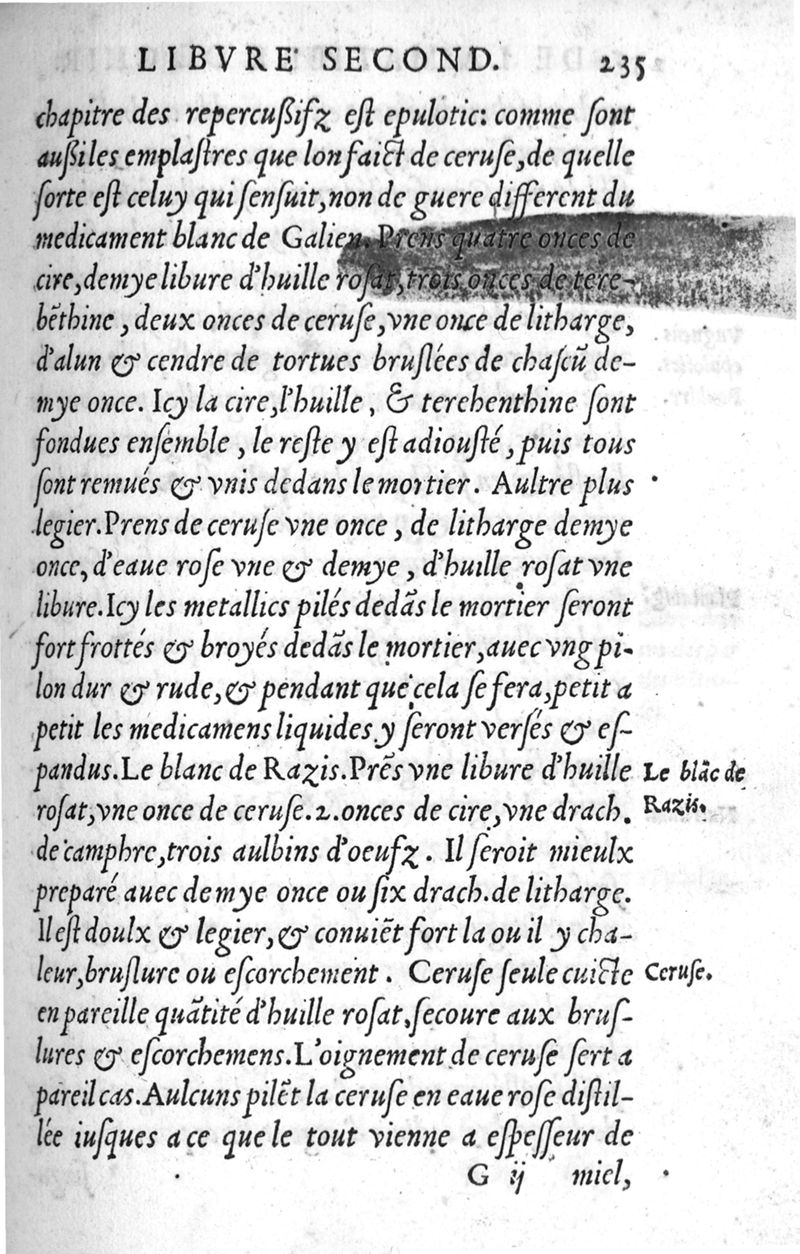 LIBVRE SECOND. 235
chapitre des repercußifz eſt epulotic: comme ſont
außi les emplaſtres que lon faict de ceruſe, de quelle
ſorte eſt celuy qui ſenſuit, non de guere different du
medicament blanc de Galien. Prens quatre onces de
cire, demye libure d'huille roſat, trois onces de tere-
bẽthine, deux onces de ceruſe, vne once de litharge,
d'alun & cendre de tortues bruſlées de chaſcũ de-
mye once. Icy la cire, l'huille, & terebenthine ſont
fondues enſemble, le reſte y eſt adiouſté, puis tous
ſont remués & vnis dedans le mortier. Aultre plus
legier. Prens de ceruſe vne once, de litharge demye
once, d'eaue roſe vne & demye, d'huille roſat vne
libure. Icy les metallics pilés dedãs le mortier ſeront
fort frottés & broyés dedãs le mortier, auec vng pi-
lon dur & rude, & pendant que cela ſe fera, petit a
petit les medicamens liquides y ſeront verſés & eſ-
pandus. Le blanc de Razis. Prẽs vne libure d'huille
Le blãc de
roſat, vne once de ceruſe. 2. onces de cire, vne drach.
Razis.
de camphre, trois aulbins d'oeufz. Il ſeroit mieulx
preparé auec demye once ou ſix drach. de litharge.
Il eſt doulx & legier, & conuiẽt fort la ou il y cha-
leur, bruſlure ou eſcorchement. Ceruſe ſeule cuicte
Ceruſe.
en pareille quãtité d'huille roſat, ſecoure aux bruſ-
lures & eſcorchemens. L'oignement de ceruſe ſert a
pareil cas. Aulcuns pilẽt la ceruſe en eaue roſe diſtil-
lée iuſques a ce que le tout vienne a eſpeſſeur de
G ij miel,